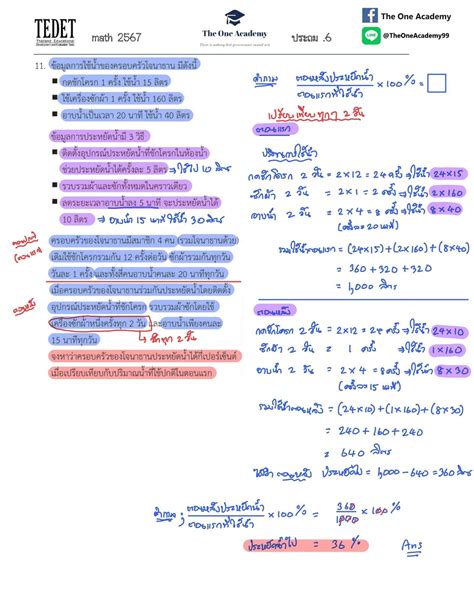 TEDET
Thailand Educational
Development and Evaluation Tests
math 2567
The One Academy
ประถม .6
The One Academy
@TheOneAcademy99
11. ข้อมูลการใช้น้ำของครอบครัวใจนาธาน มีดังนี้
▪ กดชักโครก 1 ครั้ง ใช้น้ำ 15 ลิตร
▪ ใช้เครื่องซักผ้า 1 ครั้ง ใช้น้ำ 160 ลิตร
▪ อาบน้ำเป็นเวลา 20 นาที ใช้น้ำ 40 ลิตร
ข้อมูลการประหยัดน้ำมี 3 วิธี
▪ ติดตั้งอุปกรณ์ประหยัดน้ำที่ชักโครกในห้องน้ำ
ช่วยประหยัดน้ำได้ครั้งละ 5 ลิตร ⇒ ใช้ไป 10 ลิตร
▪ รวบรวมผ้าและซักทั้งหมดในคราวเดียว
▪ ลดระยะเวลาอาบน้ำลง 5 นาที จะประหยัดน้ำได้
10 ลิตร ⇒ อาบน้ำ 15 นาที ใช้น้ำ 30 ลิตร
ครอบครัวของใจนาธานมีสมาชิก 4 คน (รวมใจนาธานด้วย)
เดิมใช้ชักโครกรวมกัน 12 ครั้งต่อวัน ซักผ้ารวมกันทุกวัน
วันละ 1 ครั้ง และทั้งสี่คนอาบน้ำคนละ 20 นาทีทุกวัน
เมื่อครอบครัวของใจนาธานร่วมกันประหยัดน้ำโดยติดตั้ง
อุปกรณ์ประหยัดน้ำที่ชักโครก รวบรวมผ้าซักโดยใช้
เครื่องซักผ้าหนึ่งครั้งทุก 2 วัน และอาบน้ำเพียงคนละ
15 นาทีทุกวัน
ซักทุก 2 วัน
จงหาว่าครอบครัวของใจนาธานประหยัดน้ำได้กี่เปอร์เซ็นต์
เมื่อเปรียบเทียบกับปริมาณน้ำที่ใช้ปกติในตอนแรก
ตอนแรก
ตอนหลัง
คำถาม ตอนหลังประหยัดน้ำ / ตอนแรกที่ใช้น้ำ × 100 % = □
เปรียบเทียบทุกๆ 2 วัน
ตอนแรก
ปริมาณใช้น้ำ
กดชักโครก 2 วัน = 2×12 = 24 ครั้ง ⇒ ใช้น้ำ 24×15
ซักผ้า 2 วัน = 2×1 = 2 ครั้ง ⇒ ใช้น้ำ 2×160
อาบน้ำ 2 วัน = 2×4 = 8 ครั้ง ⇒ ใช้น้ำ 8×40
(ครั้งละ 20 นาที)
รวมใช้น้ำตอนแรก = (24×15)+(2×160)+(8×40)
= 360 + 320 + 320
= 1,000 ลิตร
ตอนหลัง
กดชักโครก 2 วัน = 2×12 = 24 ครั้ง ⇒ ใช้น้ำ 24×10
ซักผ้า 2 วัน = 1 ครั้ง ⇒ ใช้น้ำ 1×160
อาบน้ำ 2 วัน = 2×4 = 8 ครั้ง ⇒ ใช้น้ำ 8×30
(ครั้งละ 15 นาที)
รวมใช้น้ำตอนหลัง = (24×10)+(1×160)+(8×30)
= 240 + 160 + 240
= 640 ลิตร
ตอนหลัง ประหยัดไป = 1,000 – 640 = 360 ลิตร
คำถาม ; ตอนหลังประหยัดน้ำ / ตอนแรกที่ใช้น้ำ × 100 % = 360 / 1000 × 100 %
ประหยัดน้ำไป = 36 % Ans